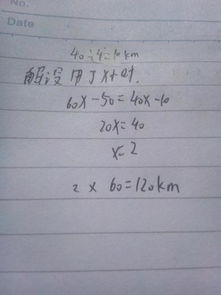 No.
Date
40÷4=10km
解设用了x小时.
60x-50=40x-10
20x=40
x=2
2×60=120km